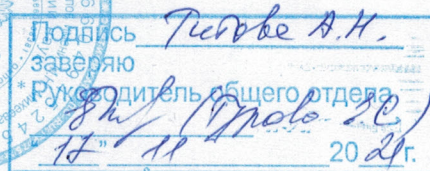 Подпись Титова А.Н.
заверяю
Руководитель общего отдела
"17" 11 2021г.